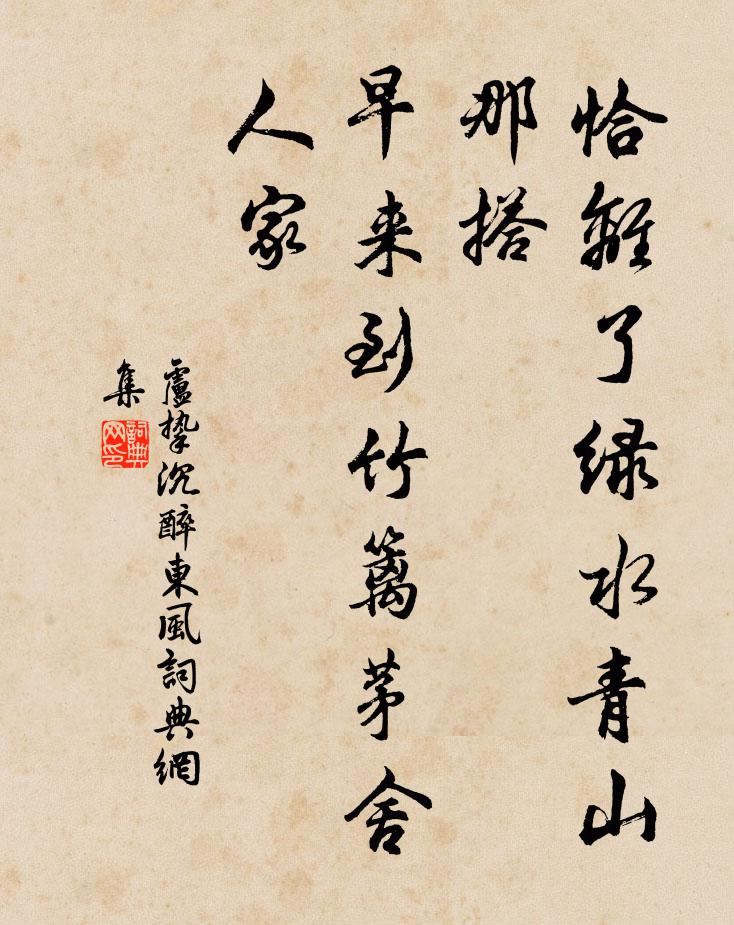 恰離了绿水青山
那搭
早来到竹籬茅舍
人家
盧挚沉醉東風詞典網
集
詞典
网印